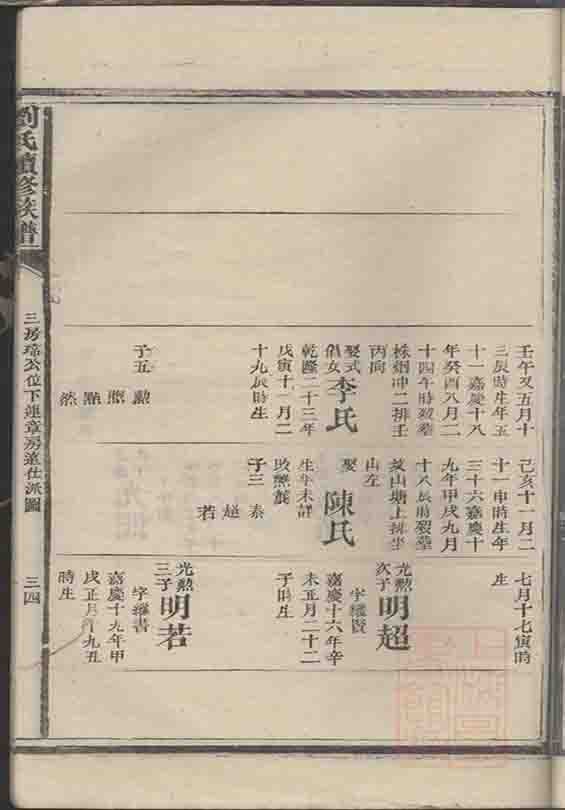 劉氏續修族譜
三房瑞公位下連章房蓮仕派圖
三四
壬午又五月十
三辰時生年五
十一嘉慶十八
年癸酉八月二
十四午時歿葬
株烟冲二排壬
丙向
娶式
倡女李氏
乾隆二十三年
戊寅十一月二
十九辰時生
子五 勲
然
己亥十一月二
十一申時生年
三十六嘉慶十
九年甲戌九月
十八辰時歿葬
坟山塘上排坐
山左
娶陳氏
生年未詳
歿無葬
子三 泰
超
若
七月十七寅時
生
光勲
次子明超
字耀賢
嘉慶十六年辛
未正月二十二
子時生
光勲
三子明若
字耀書
嘉慶十九年甲
戌正月十九丑
時生